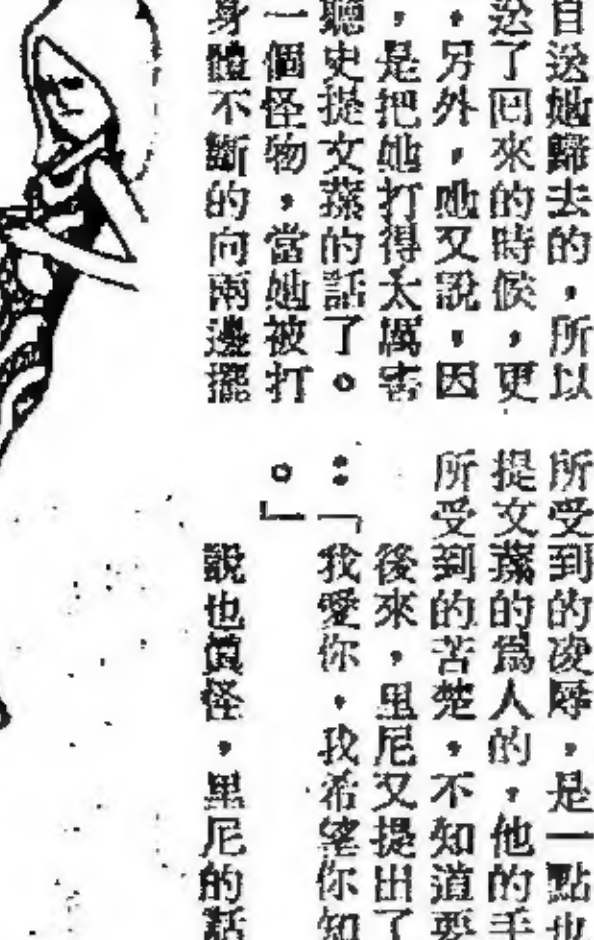 自送她歸去的，所以
送了回來的時候，更
，另外，她又說，因
，是把她打得太厲害
聽史提文蓀的話了。
一個怪物，當她被打
身體不斷的向兩邊擺
所受到的凌辱，是一點也
提文蓀的為人的，他的手
所受到的苦楚，不知道要
後來，里尼又提出了
：「我愛你，我希望你知
。」
說也眞怪，里尼的話